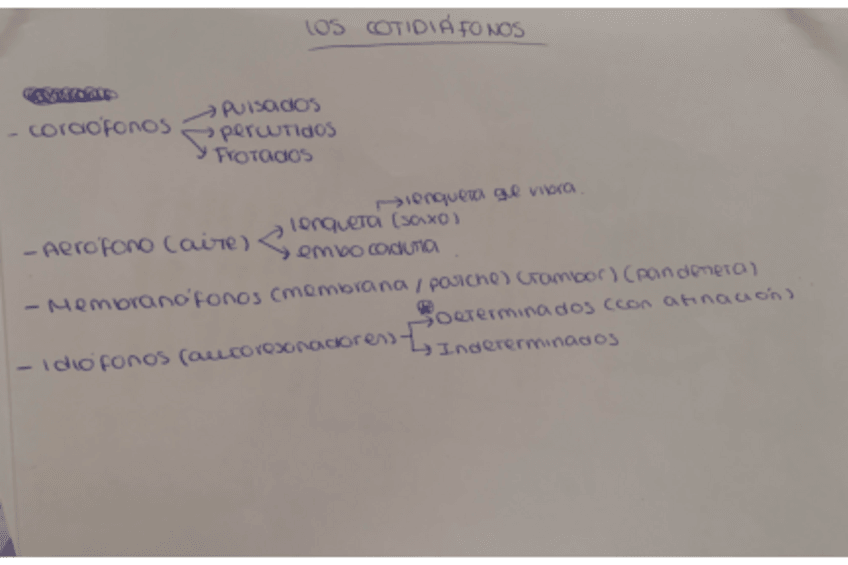 LOS COTIDIÁFONOS
- cordófonos → pulsados
→ percutidos
→ Frotados
→ lengueta que vibra.
- Aerófono (aire) → lengueta (saxo)
→ embocadura
- Membranófonos (membrana / parche) (tambor) (pandereta)
- Idiófonos (autoresonadores) → Determinados (con afinación)
→ Indeterminados